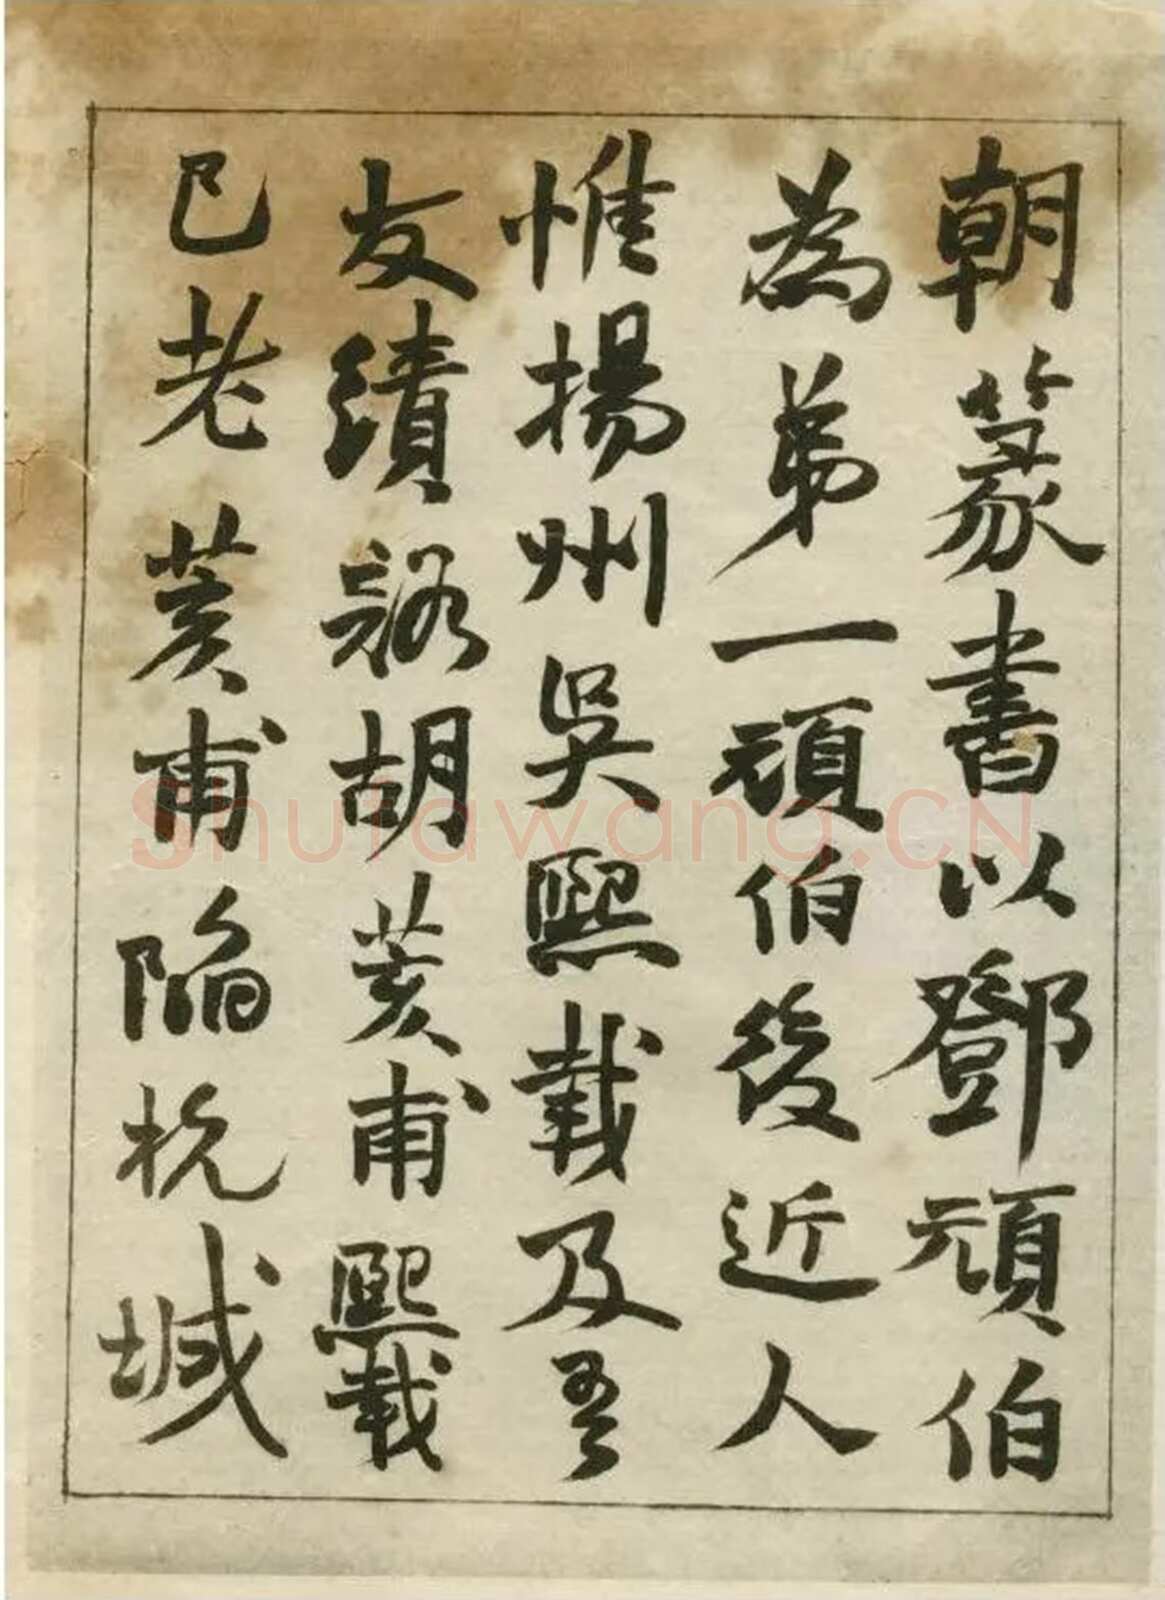 朝篆書以鄧頑伯
為弟一頑伯後近人
惟揚州吳熙載及吾
友績谿胡荄甫熙載
已老荄甫陷杭城
Shufawang.CN